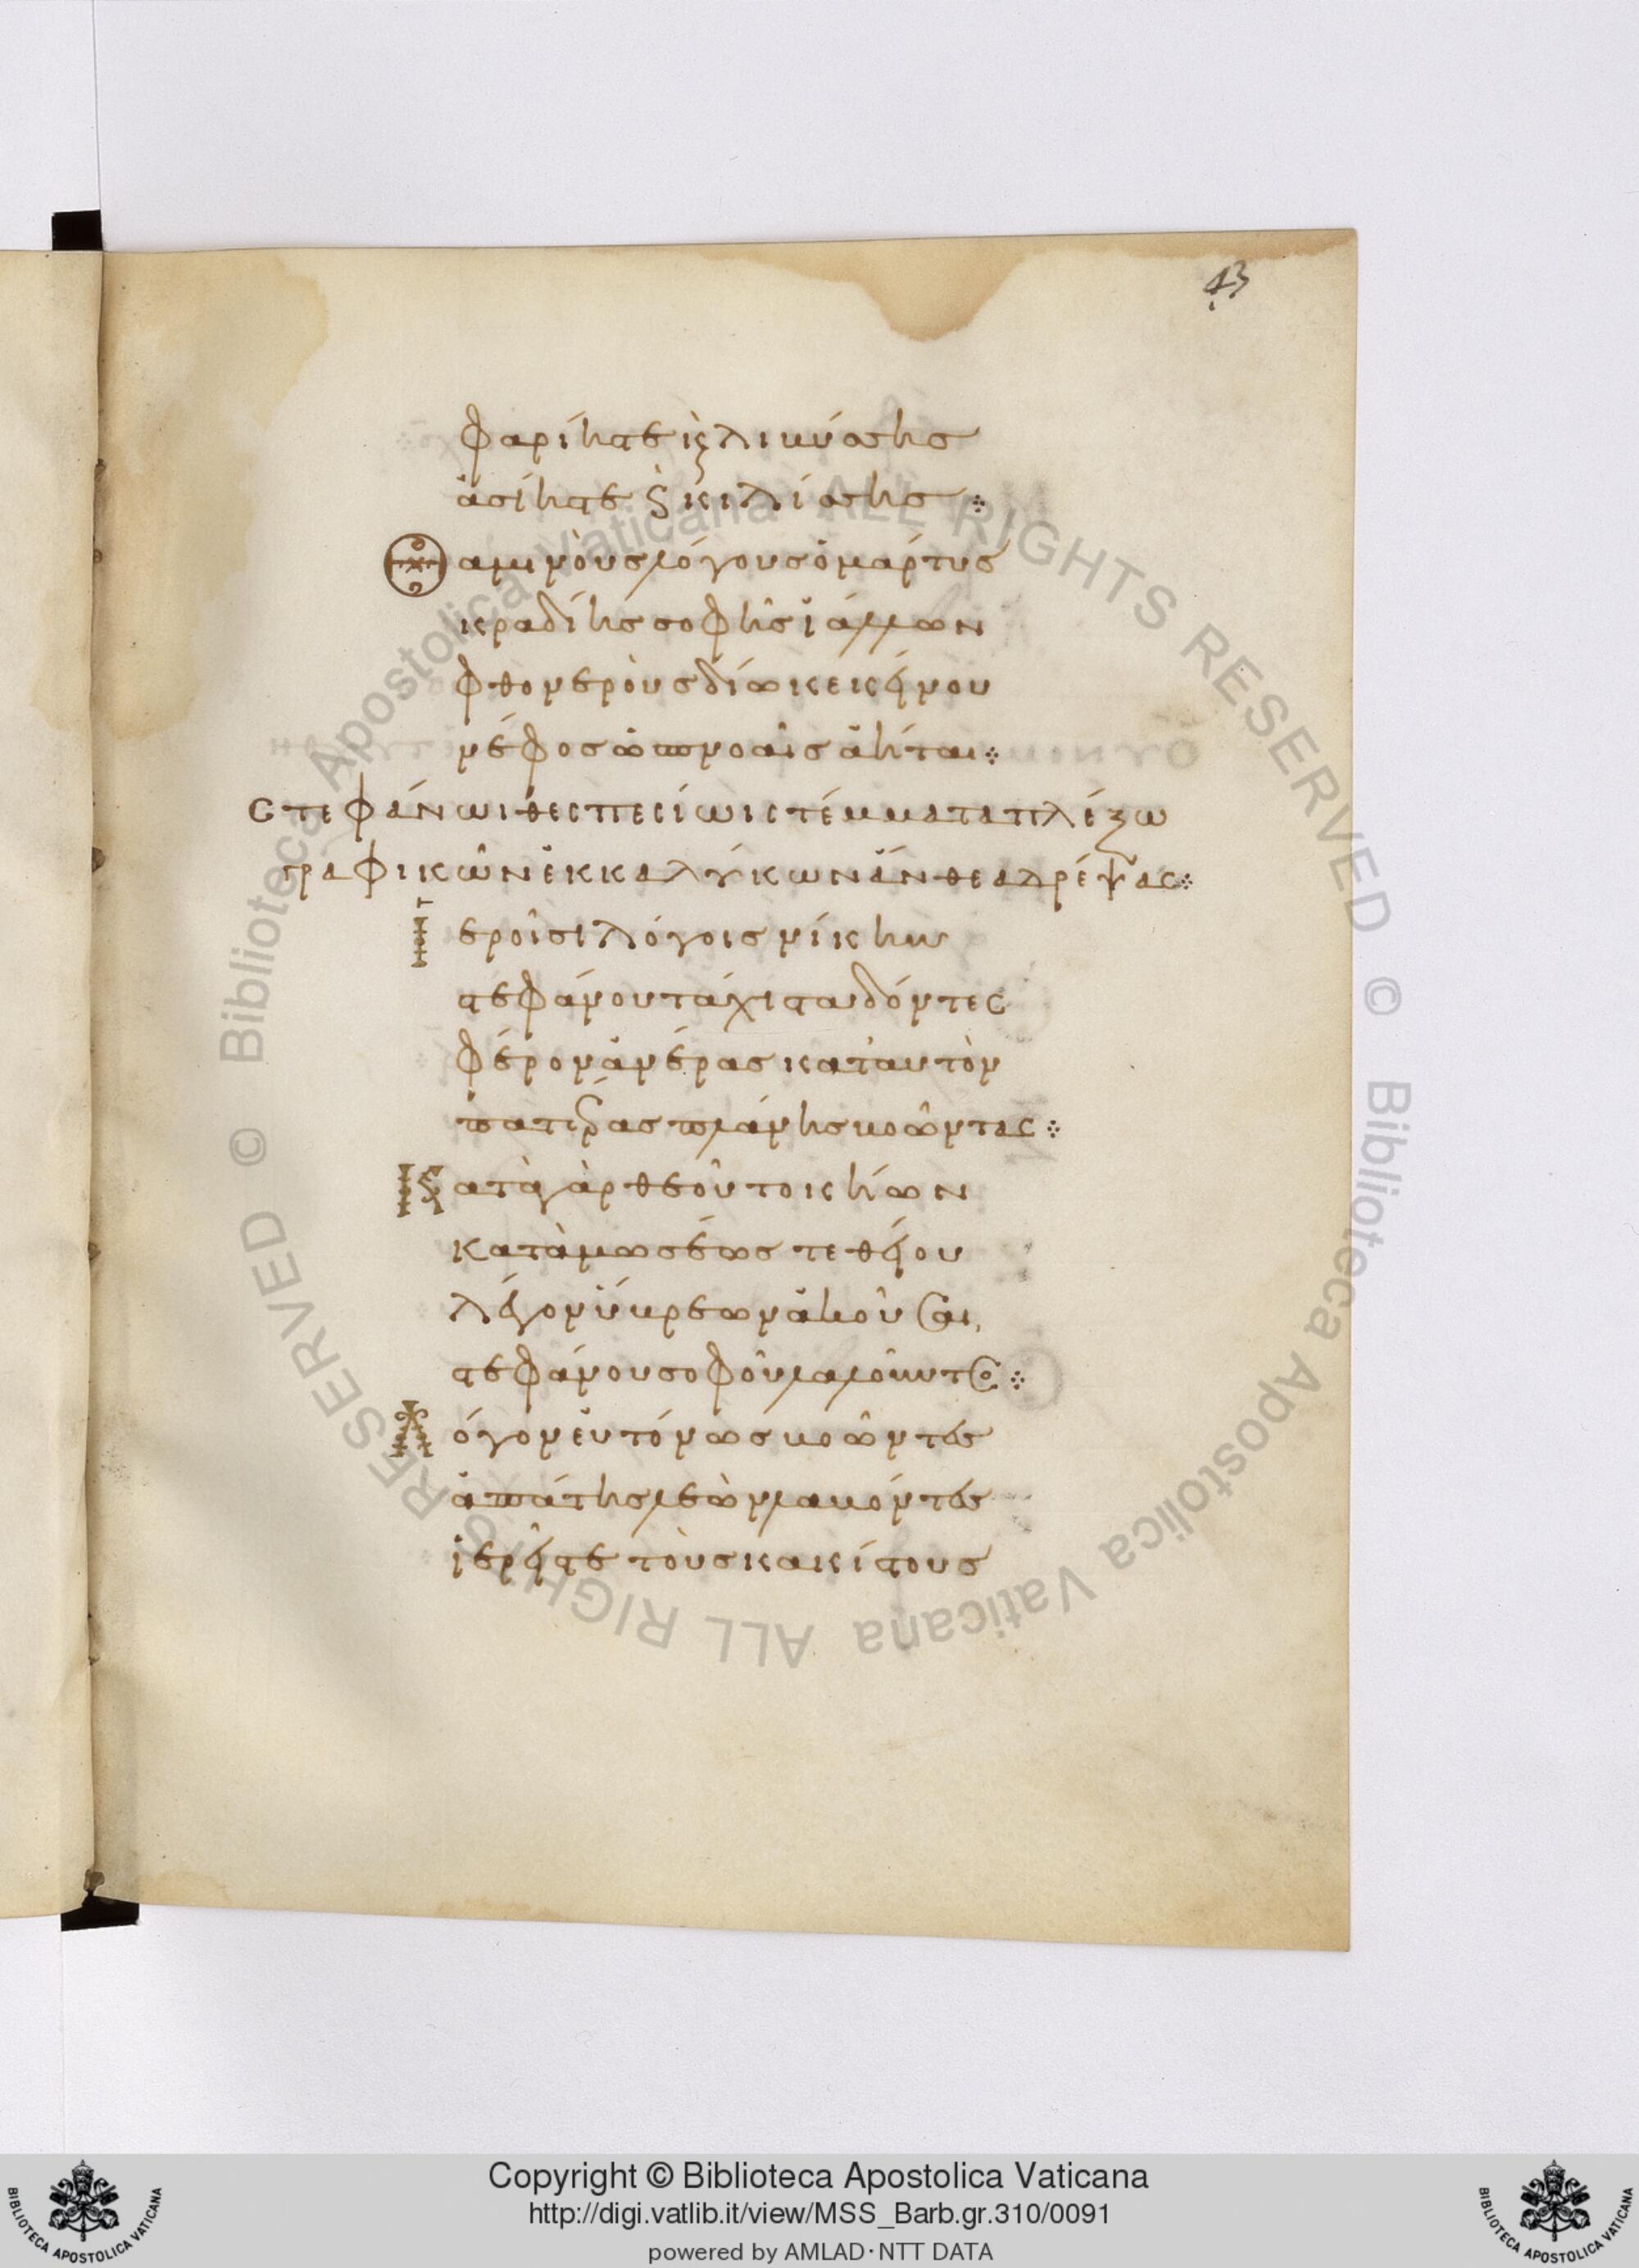 43
φαρίης τε ἰξ λιβύσης
ἀσίης τε ς κιλίσης
Θαμινοὺς λόγους ὁ μάρτυς
κραδίης σοφῆς ἰάλλων
φθονεροὺς δίωκε κείνου
νέφος ὡς πνοαῖς ἀῆται
Στεφάνωι θεσπεσίωι στέμματα πλέξω
γραφικῶν ἐκ καλύκων ἄνθεα δρέψας
Ἱεροῖσι λόγοις νίκην
στεφάνου τάχιστα δόντες
φέρον ἀνέρας κατ' αυτὸν
πατέρας πλάνης βοῶντας
Κατὰ γὰρ θεοῦ τοκήων
κατὰ μωσέως τε θείου
λέγον ὕβρεων ἀκοῦσαι
στεφάνου σοφοῦ λαλοῦντος
Λόγον εὐτόνως βοῶντες
ἀπάτης λεὼν λαβόντες
ἱερεῖς τε τοὺς κακίστους
Copyright © Biblioteca Apostolica Vaticana
http://digi.vatlib.it/view/MSS_Barb.gr.310/0091
powered by AMLAD·NTT DATA
BIBLIOTECA APOSTOLICA VATICANA
BIBLIOTECA APOSTOLICA VATICANA
© Biblioteca Apostolica Vaticana ALL RIGHTS RESERVED © Biblioteca Apostolica Vaticana ALL RIGHTS RESERVED